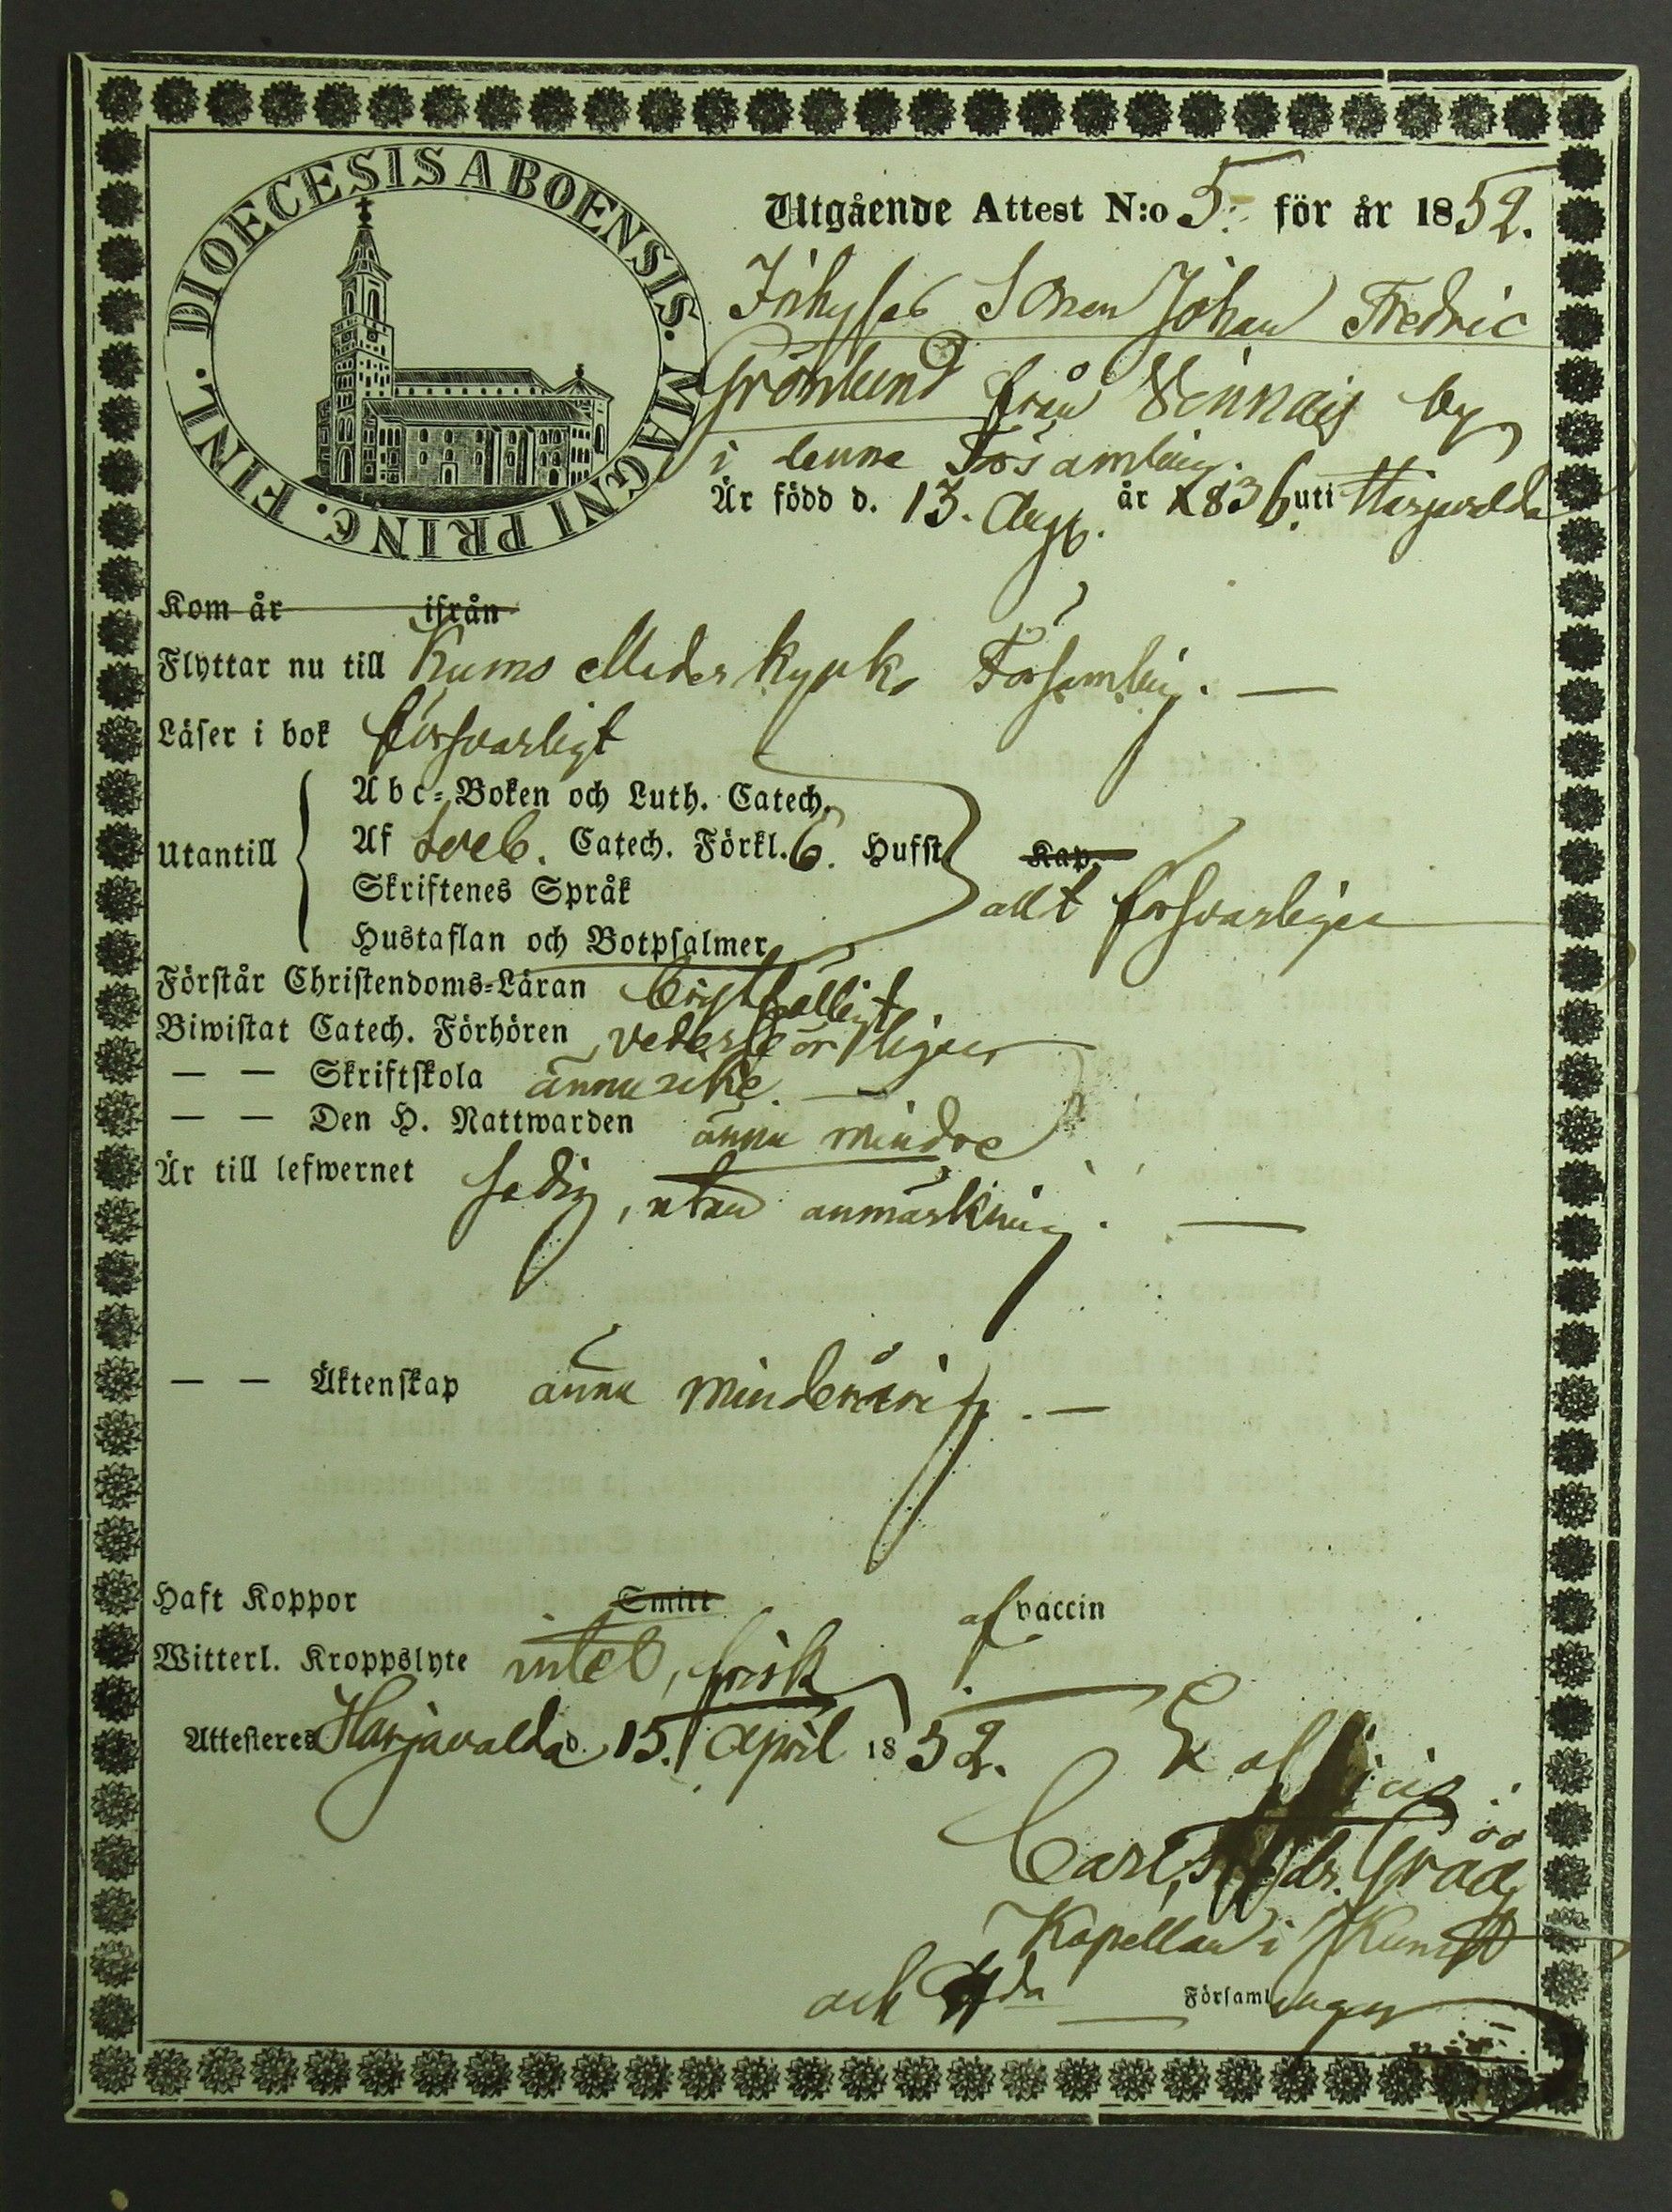 DIOECESIS ABOENSIS. MAGNI PRINC. FINL.
Utgående Attest N:o 5. för år 1852.
Inhyses Sonen Johan Fredric
Grönlund från by
i denna Församling.
Är född d. 13. Aug. år 1836 uti Harjavalda
Kom år ifrån
Flyttar nu till Kumo Moderkyrko Församling. —
Läser i bok försvarligt
Abc-Boken och Luth. Catech.
Utantill Af Sveb. Catech. Förkl. 6. Hufst. Kap.
Skriftenes Språk allt försvarligen
Hustaflan och Botpsalmer
Förstår Christendoms-Läran
Biwistat Catech. Förhören
— — Skriftskola ännu icke. —
— — Den H. Nattwarden ännu mindre
Är till lefwernet sedig, utan anmärkning. —
— — Äktenskap ännu minderårig. —
Haft Koppor Smitt af vaccin
Witterl. Kroppslyte intet, frisk
Attesteres Harjavalda d. 15. April 1852. Ex officio:
Carl Gråå
Kapellan i Kumo
och Församlingar